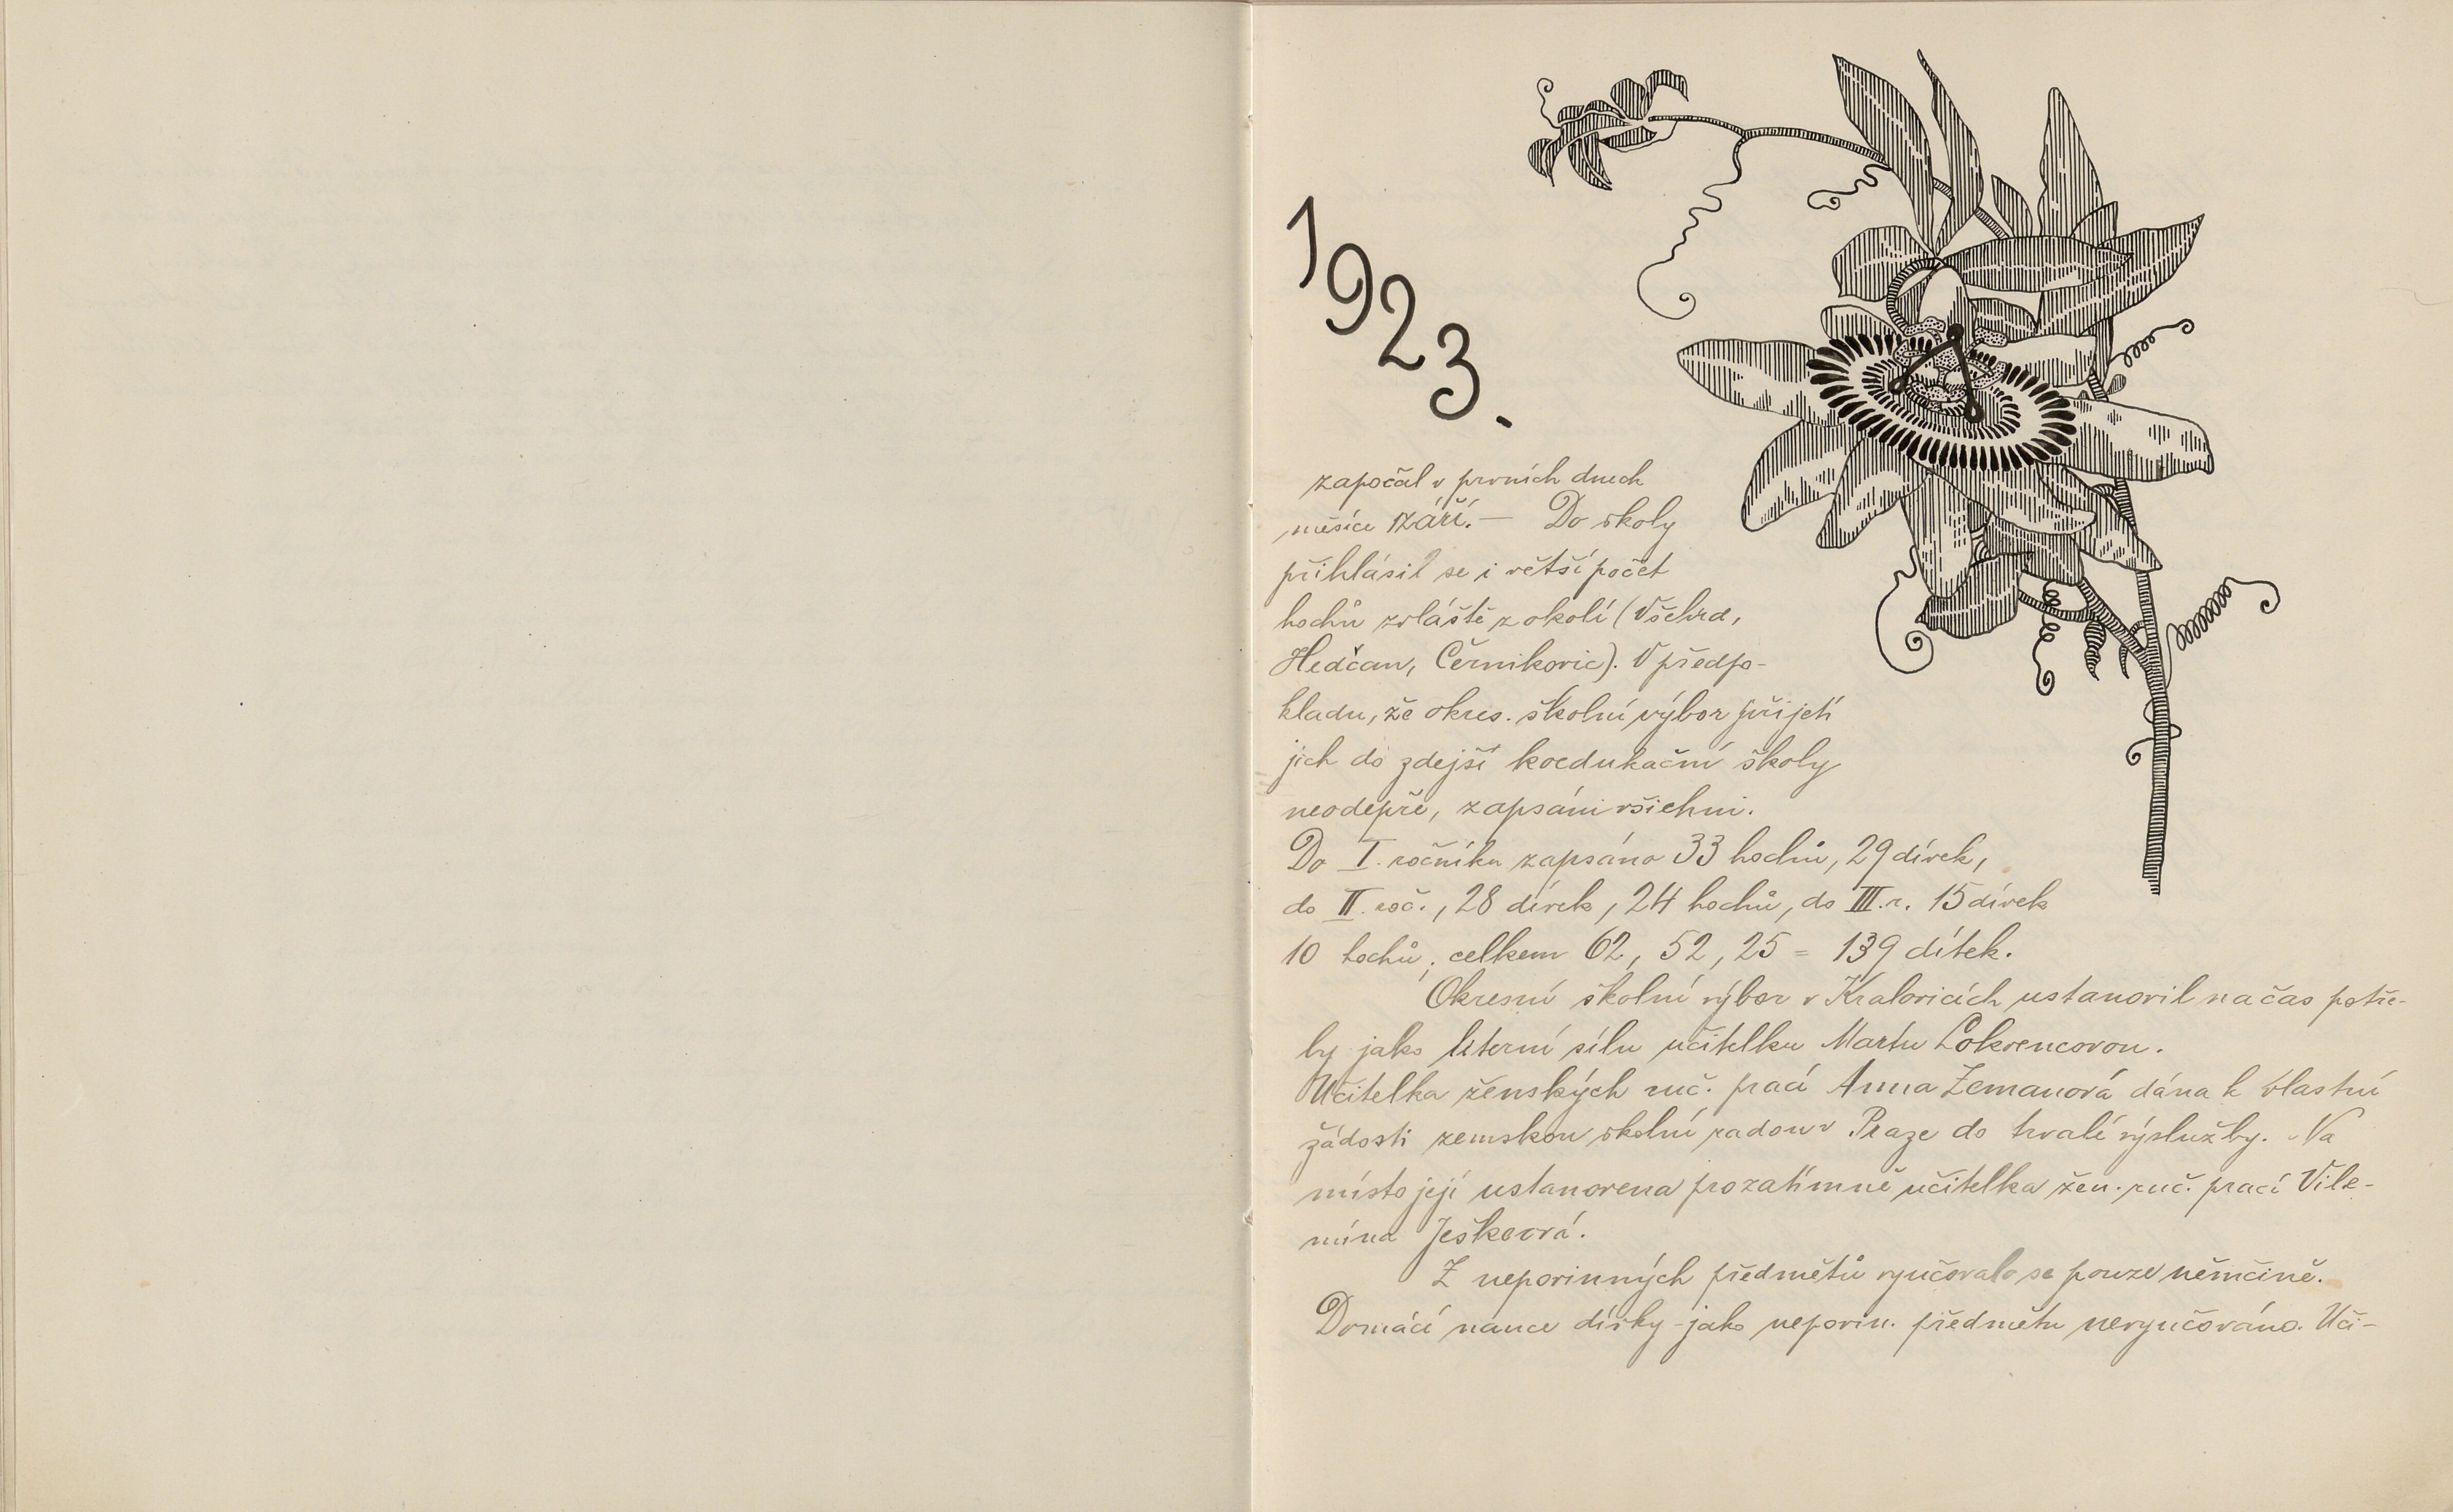 1923.
započal v prvních dnech
měsíce září. — Do školy
přihlásil se i větší počet
hochů zvláště z okolí (Všehrd,
Hedčan, Černíkovic). V předpo-
kladu, že okres. školní výbor přijetí
jich do zdejší koedukační školy
neodepře, zapsáni všichni.
Do I. ročníku zapsáno 33 hochů, 29 dívek,
do II. roč., 28 dívek, 24 hochů, do III. r. 15 dívek
10 hochů; celkem 62, 52, 25 = 139 dítek.
Okresní školní výbor v Kralovicích ustanovil na čas potře-
by jako literní sílu učitelku Martu Lokvencovou.
Učitelka ženských ruč. prací Anna Zemanová dána k vlastní
žádosti zemskou školní radou v Praze do trvalé výslužby. Na
místo její ustanovena prozatímně učitelka žen. ruč. prací Vile-
mína Ješkeová.
Z nepovinných předmětů vyučovalo se pouze němčině.
Domácí nauce dívky - jako nepovin. předmětu nevyučováno. Uči-